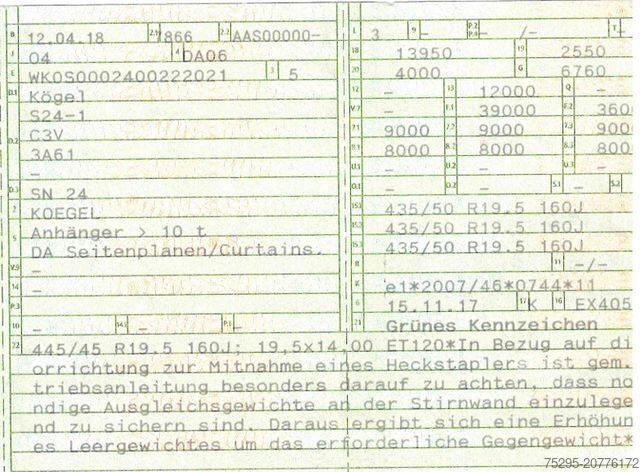 B 12.04.18 2.1 7866 2.2 AAS00000-
J 04 4 DA06
E WK0S0002400222021 3 5
D.1 Kögel
S24-1
D.2 C3V
3A61
-
D.3 SN 24
2 KOEGEL
5 Anhänger > 10 t
DA Seitenplanen/Curtains.
V.9 -
14 -
P.3
10 - 14.1 - P.1 -
L 3 9 - P.2 P.4 - /- T -
18 13950 19 2550
20 4000 G 6760
12 - 13 12000 Q -
V.7 - F.1 39000 F.2 3600
7.1 9000 7.2 9000 7.3 900
8.1 8000 8.2 8000 8.3 800
U.1 - U.2 - U.3 -
O.1 - O.2 - S.1 - S.2
15.1 435/50 R19.5 160J
15.2 435/50 R19.5 160J
15.3 435/50 R19.5 160J
R 11 -/-
K e1*2007/46*0744*11
6 15.11.17 17 K 16 EX405
21 Grünes Kennzeichen
22 445/45 R19.5 160J; 19,5x14,00 ET120*In Bezug auf di
orrichtung zur Mitnahme eines Heckstaplers ist gem.
triebsanleitung besonders darauf zu achten, dass no
ndige Ausgleichsgewichte an der Stirnwand einzulege
nd zu sichern sind. Daraus ergibt sich eine Erhöhun
es Leergewichtes um das erforderliche Gegengewicht*
75295-20776172